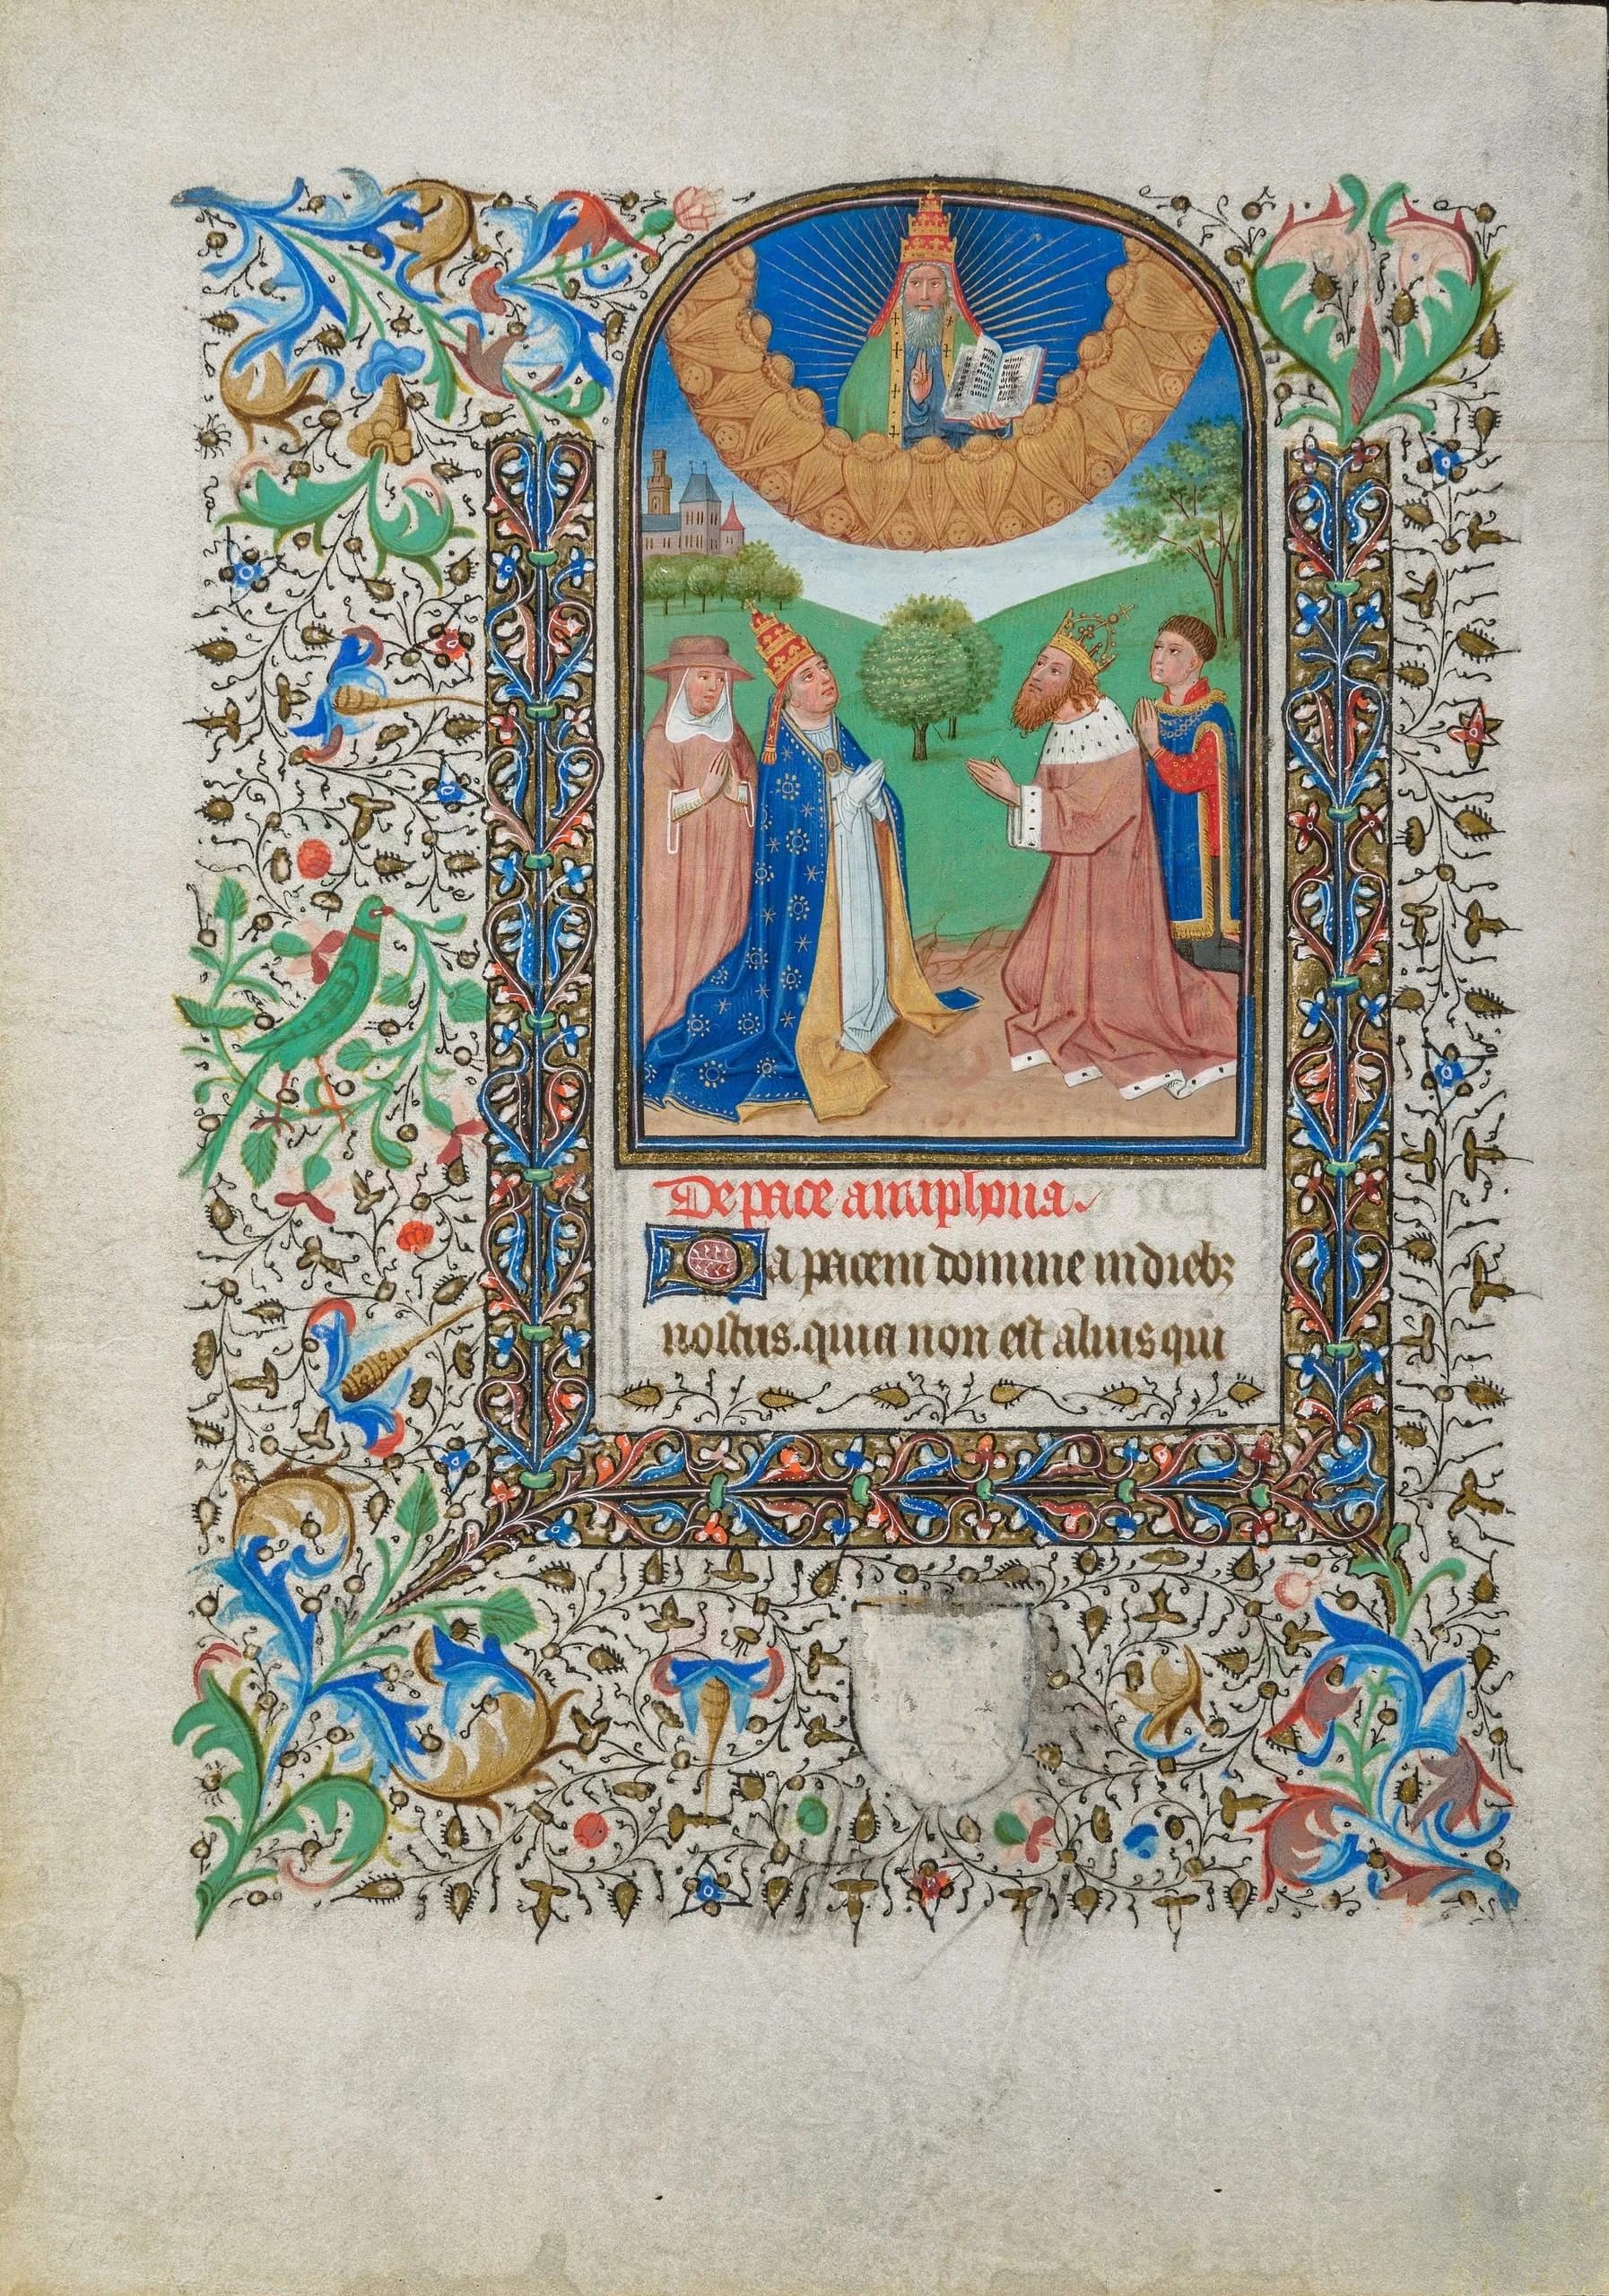 De pace antiphona.
Da pacem domine in dieb3
nostris. quia non est alius qui